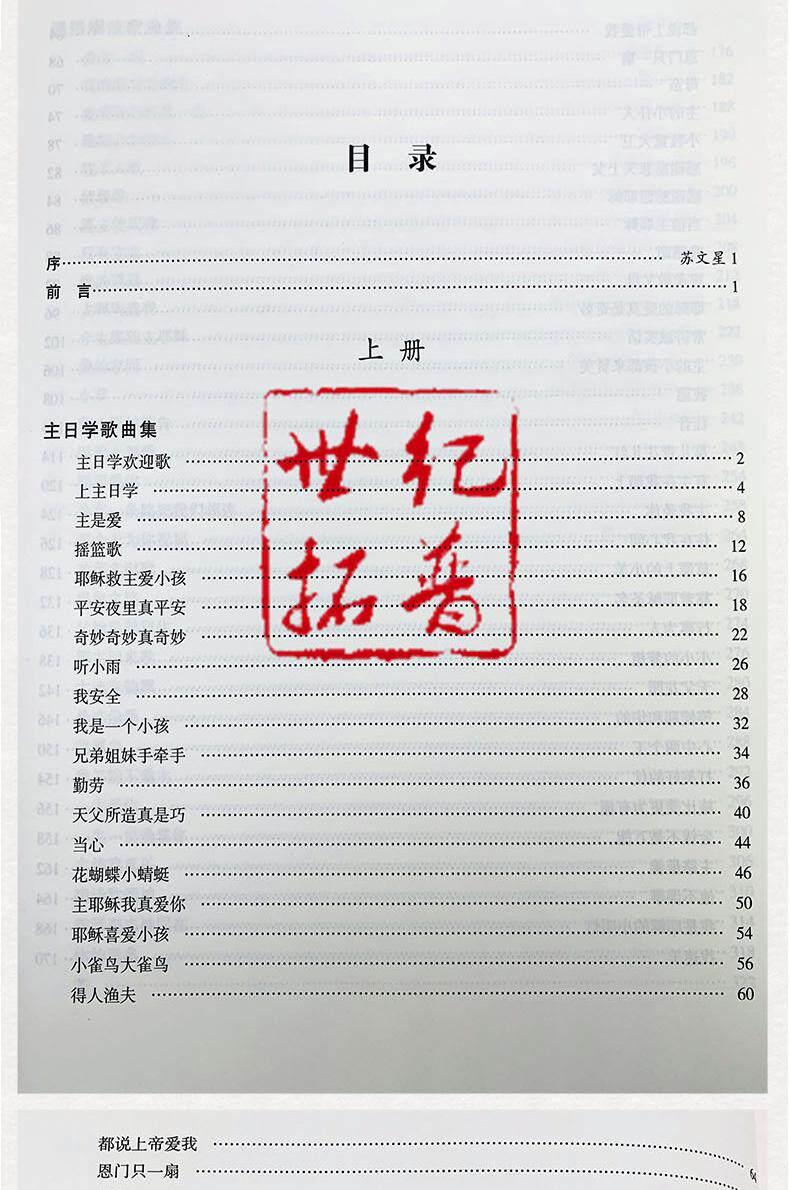 目 录
序……苏文星 1
前 言……1
上 册
主日学歌曲集
主日学欢迎歌……2
上主日学……4
主是爱……8
摇篮歌……12
耶稣救主爱小孩……16
平安夜里真平安……18
奇妙奇妙真奇妙……22
听小雨……26
我安全……28
我是一个小孩……32
兄弟姐妹手牵手……34
勤劳……36
天父所造真是巧……40
当心……44
花蝴蝶小蜻蜓……46
主耶稣我真爱你……50
耶稣喜爱小孩……54
小雀鸟大雀鸟……56
得人渔夫……60
世纪
拓普
都说上帝爱我……
恩门只一扇……